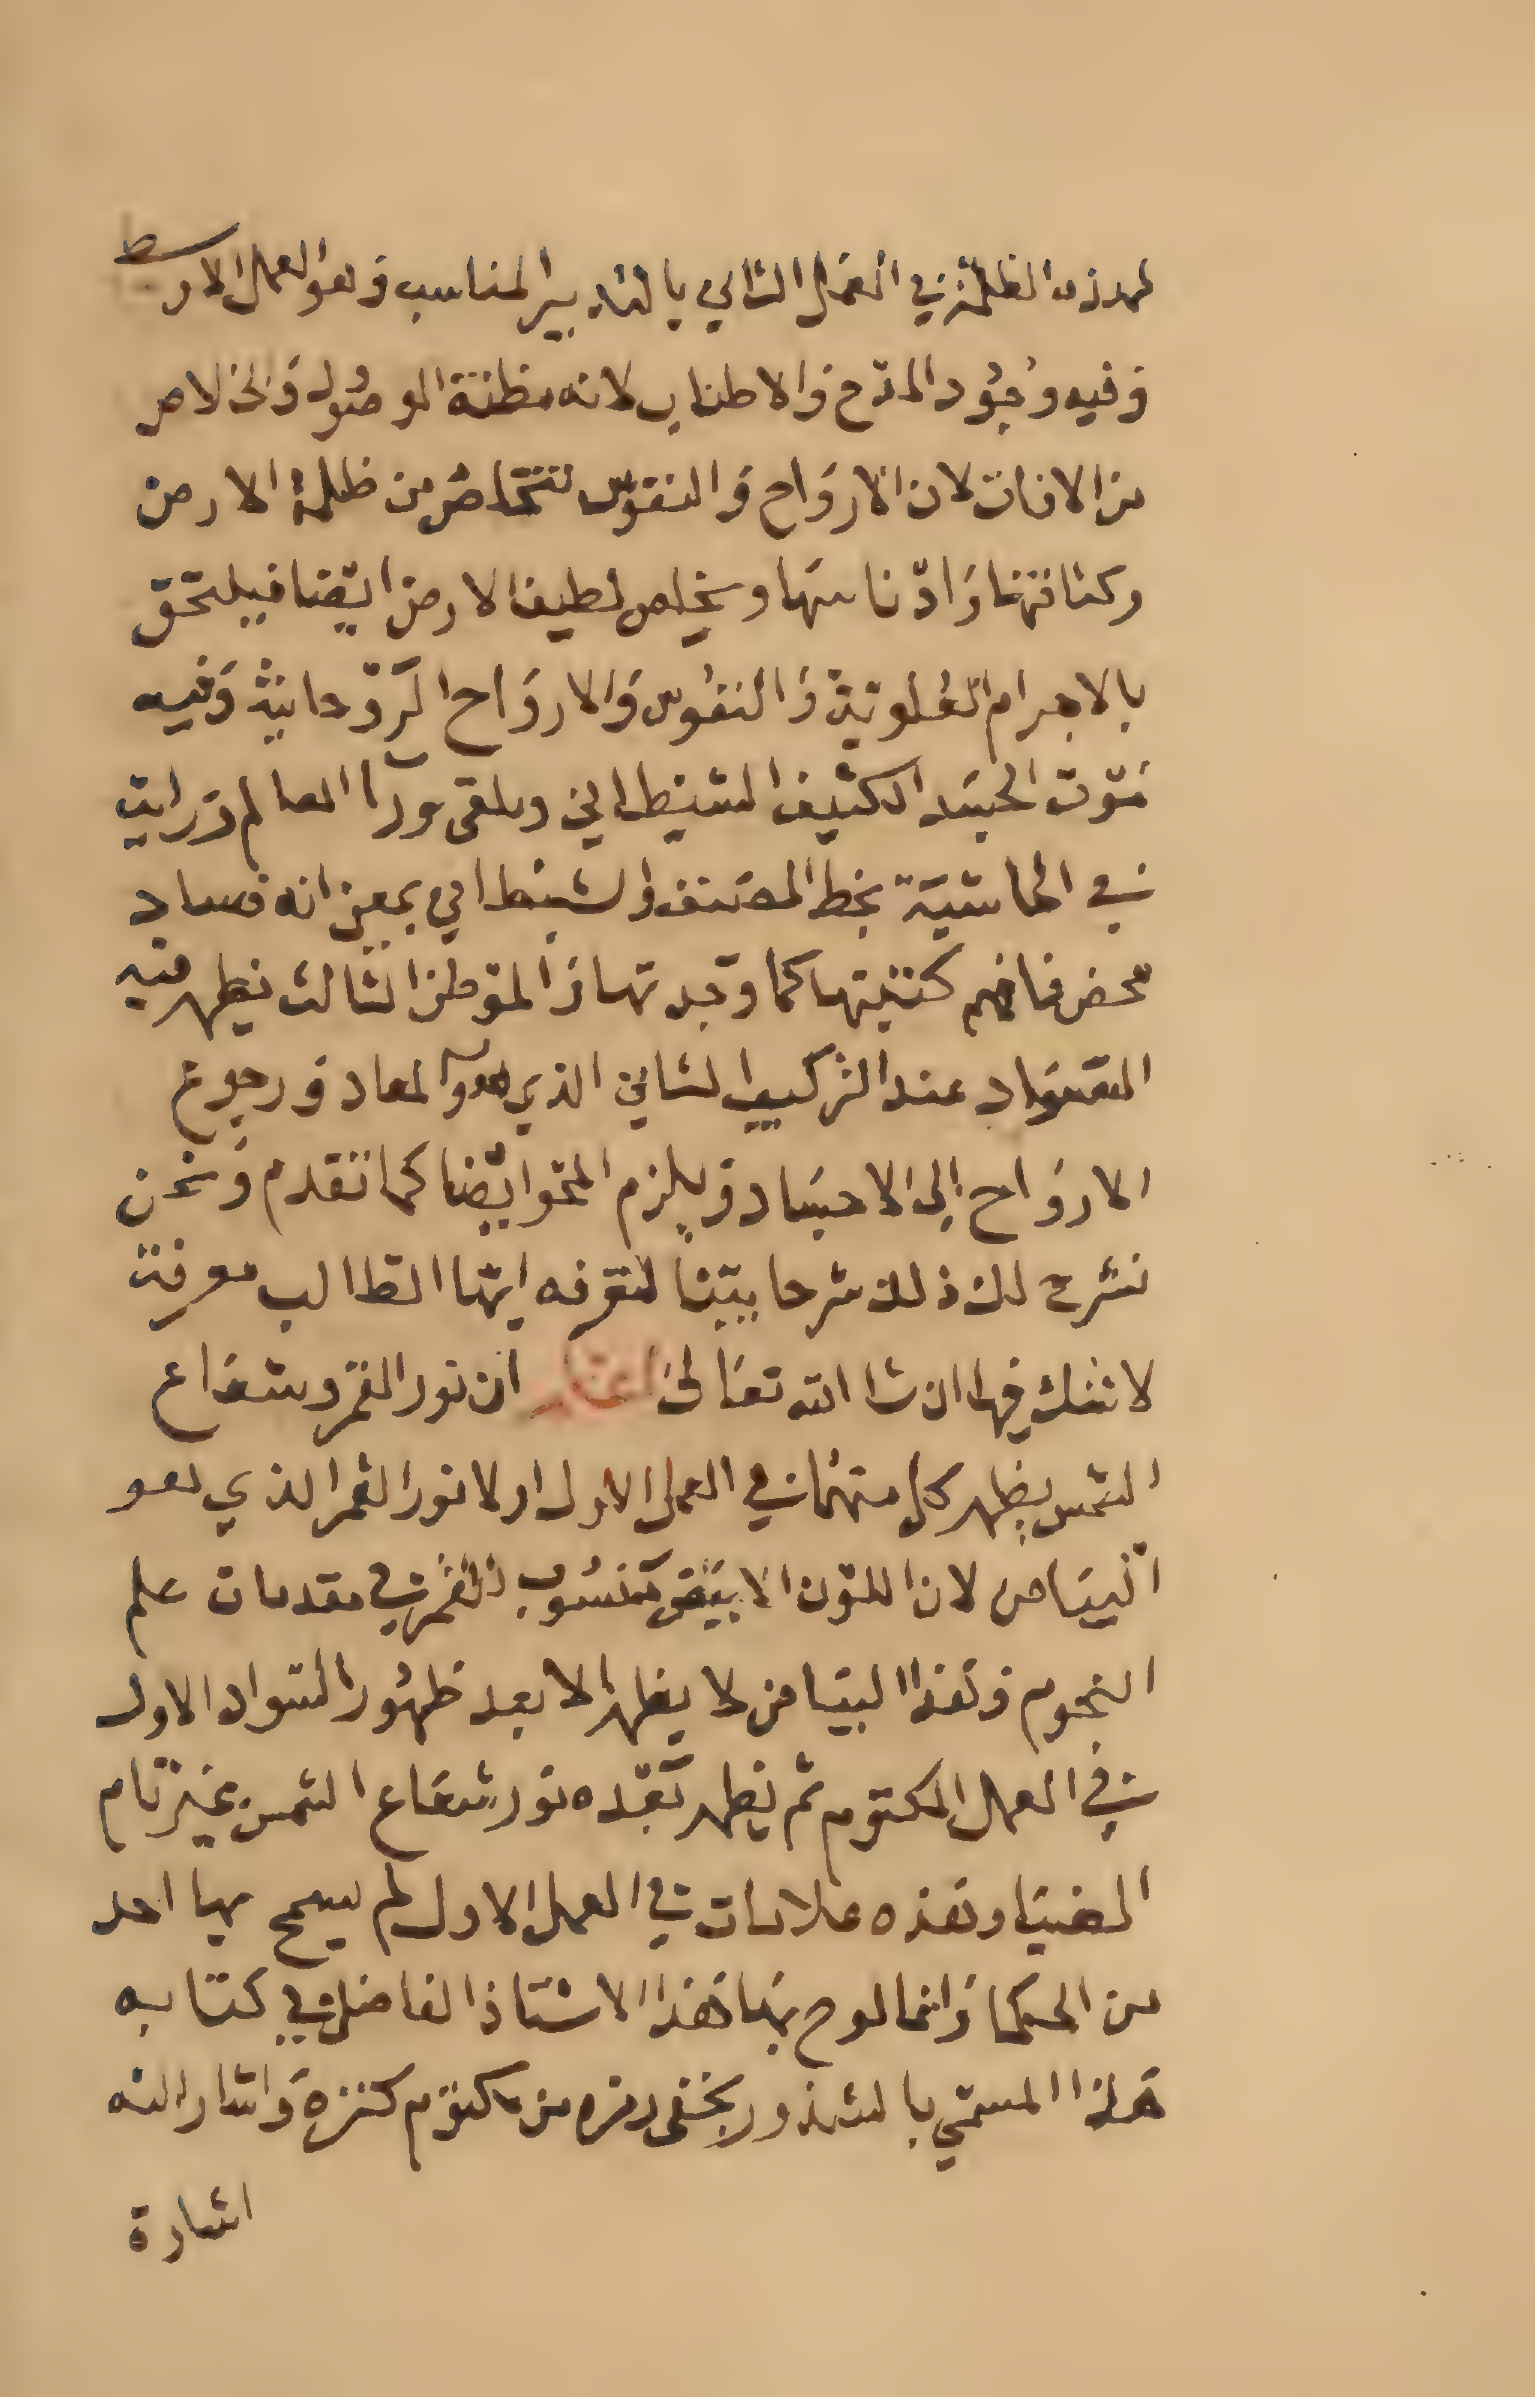 لهذه الظلمة في العمل الثاني بالتدبير المناسب وهو العمل الاوسط
وفيه وجود المدح والاطناب لانه مظنة الوصول والخلاص
من الافات لان الارواح والنفوس تتخلص من ظلمة الارض
وكثافتها وادناسها ويخلص لطيف الارض ايضا فيلتحق
بالاجرام العلوية والنفوس والارواح الروحانية وفيه
موت الجسد الكثيف الشيطاني ويلقى ورآ العالم ورايت
في الحاشية بخط المصنف والشيطاني بمعنى انه فساد
محض فافهم كتبتها كما وجدتها والموطن الثالث يظهر فيه
السواد عند التركيب الثاني الذي هو المعاد ورجوع
الارواح الى الاجساد ويلزم المحو ايضا كما تقدم ونحن
نشرح لك ذلك شرحا بينا لتعرفه ايها الطالب معرفة
لا شك فيها ان شا الله تعالى ان نور القمر وشعاع
الشمس يظهر كل منهما في العمل الاول اولا نور القمر الذي هو
البياض لان اللون الابيض منسوب للقمر في مقدمات علم
النجوم وهذا البياض لا يظهر الا بعد ظهور السواد الاول
في العمل المكتوم ثم يظهر بعده نور شعاع الشمس غير تام
الضيا وهذه علامات في العمل الاول لم يسمح بها احد
من الحكما وانما لوح بها هذا الاستاذ الفاضل في كتابه
هذا المسمى بالشذور بخفى رمزه من مكتوم كنزه واشار اليه
اشارة